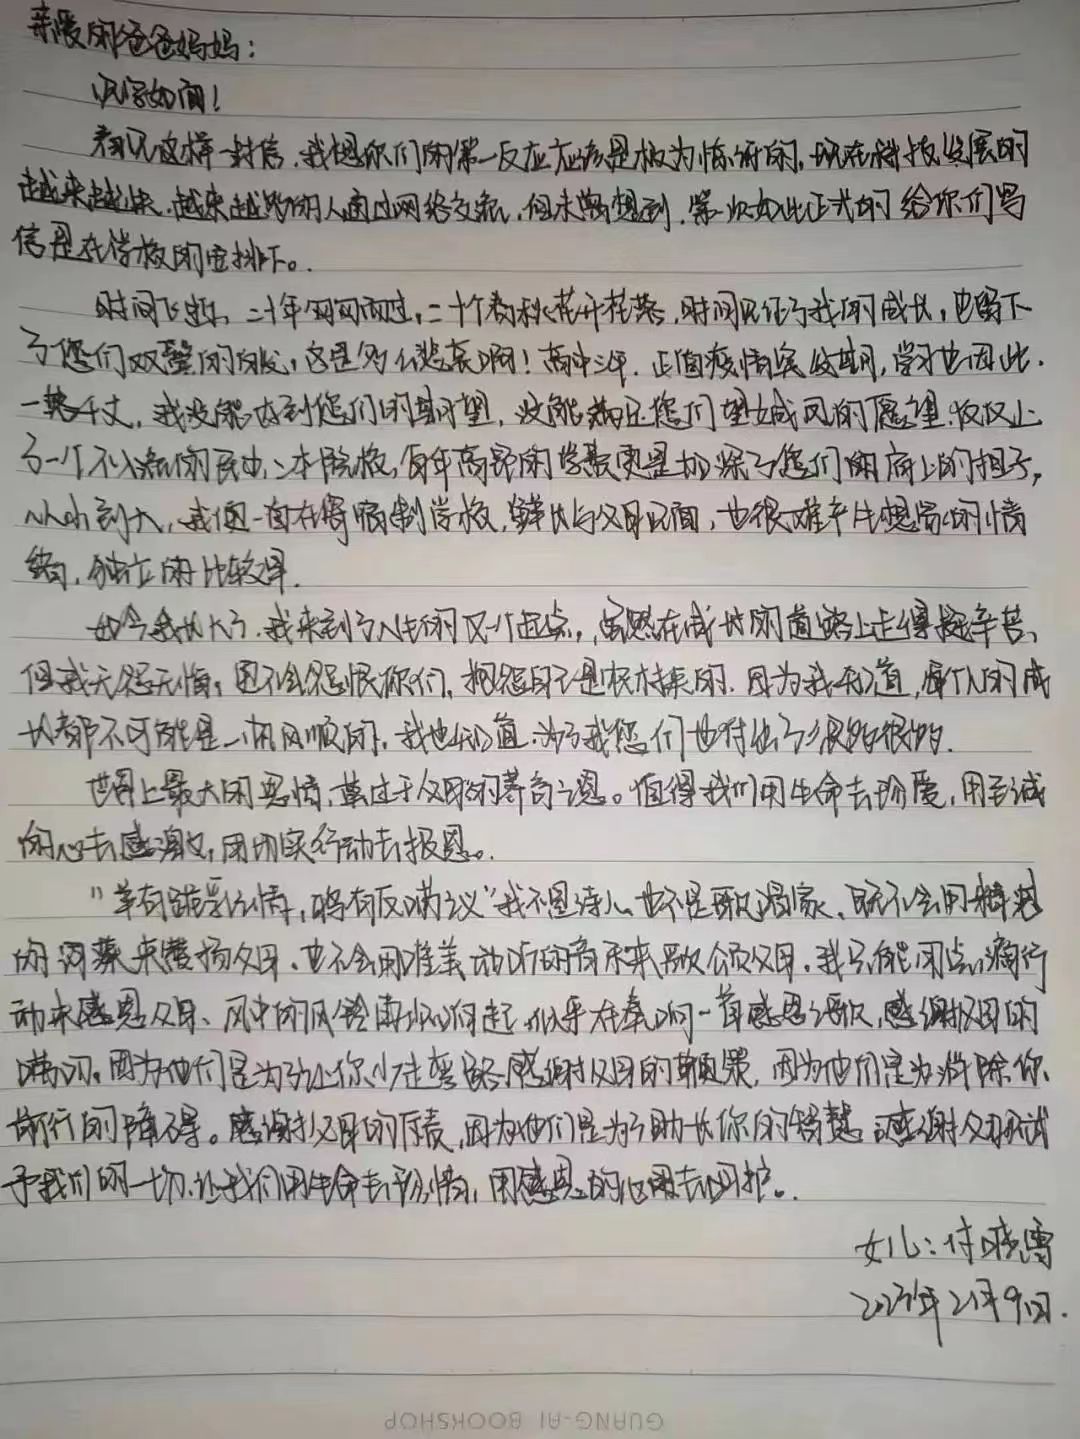 亲爱的爸爸妈妈：
见字如面！
看见这样一封信，我想你们的第一反应应该是极为惊讶的，现在科技发展的
越来越快，越来越多的人通过网络交流，但未曾想到，第一次如此正式的给你们写
信是在学校的安排下。
时间飞逝，二十年匆匆而过，二十个春秋花开花落，时间见证了我的成长，也留下
了您们双鬓的白发，这是多么悲哀啊！高中三年，正值疫情突发期，学习也因此
一落千丈，我没能达到您们的期望，没能满足您们望女成凤的愿望，仅仅上
了一个不入流的民办二本院校，每年高昂的学费更是加深了您们肩上的担子，
从小到大，我便一直在寄宿制学校，鲜少与父母见面，也很难产生想家的情
绪，独立的比较早。
如今我长大了，我来到了人生的又一个起点，虽然在成长的道路上走得挺辛苦，
但我无怨无悔，更不会怨恨你们，抱怨自己是农村来的，因为我知道，每个人的成
长都不可能是一帆风顺的，我也知道，为了我您们也付出了很多很多。
世界上最大的恩情，莫过于父母的养育之恩。值得我们用生命去珍爱，用至诚
的心去感激，用切实行动去报恩。
"羊有跪乳之情，鸦有反哺义"我不是诗人，也不是歌唱家，既不会用
的词藻来赞扬父母，也不会用准美动听的音乐来歌颂父母，我只能用点滴行
动来感恩父母、风中的风铃声响起，似乎在奏响一首感恩之歌，感谢父母的
唠叨，因为他们是为了让你少走弯路，感谢父母的，因为他们是为消除你
前行的障碍。感谢父母的斥责，因为他们是为了助长你的智慧，感谢父母
予我们的一切，让我们用生命去珍惜，用感恩的心去呵护。
女儿：付晓雪
2023年2月9日.
GUANG-AI BOOKSHOP